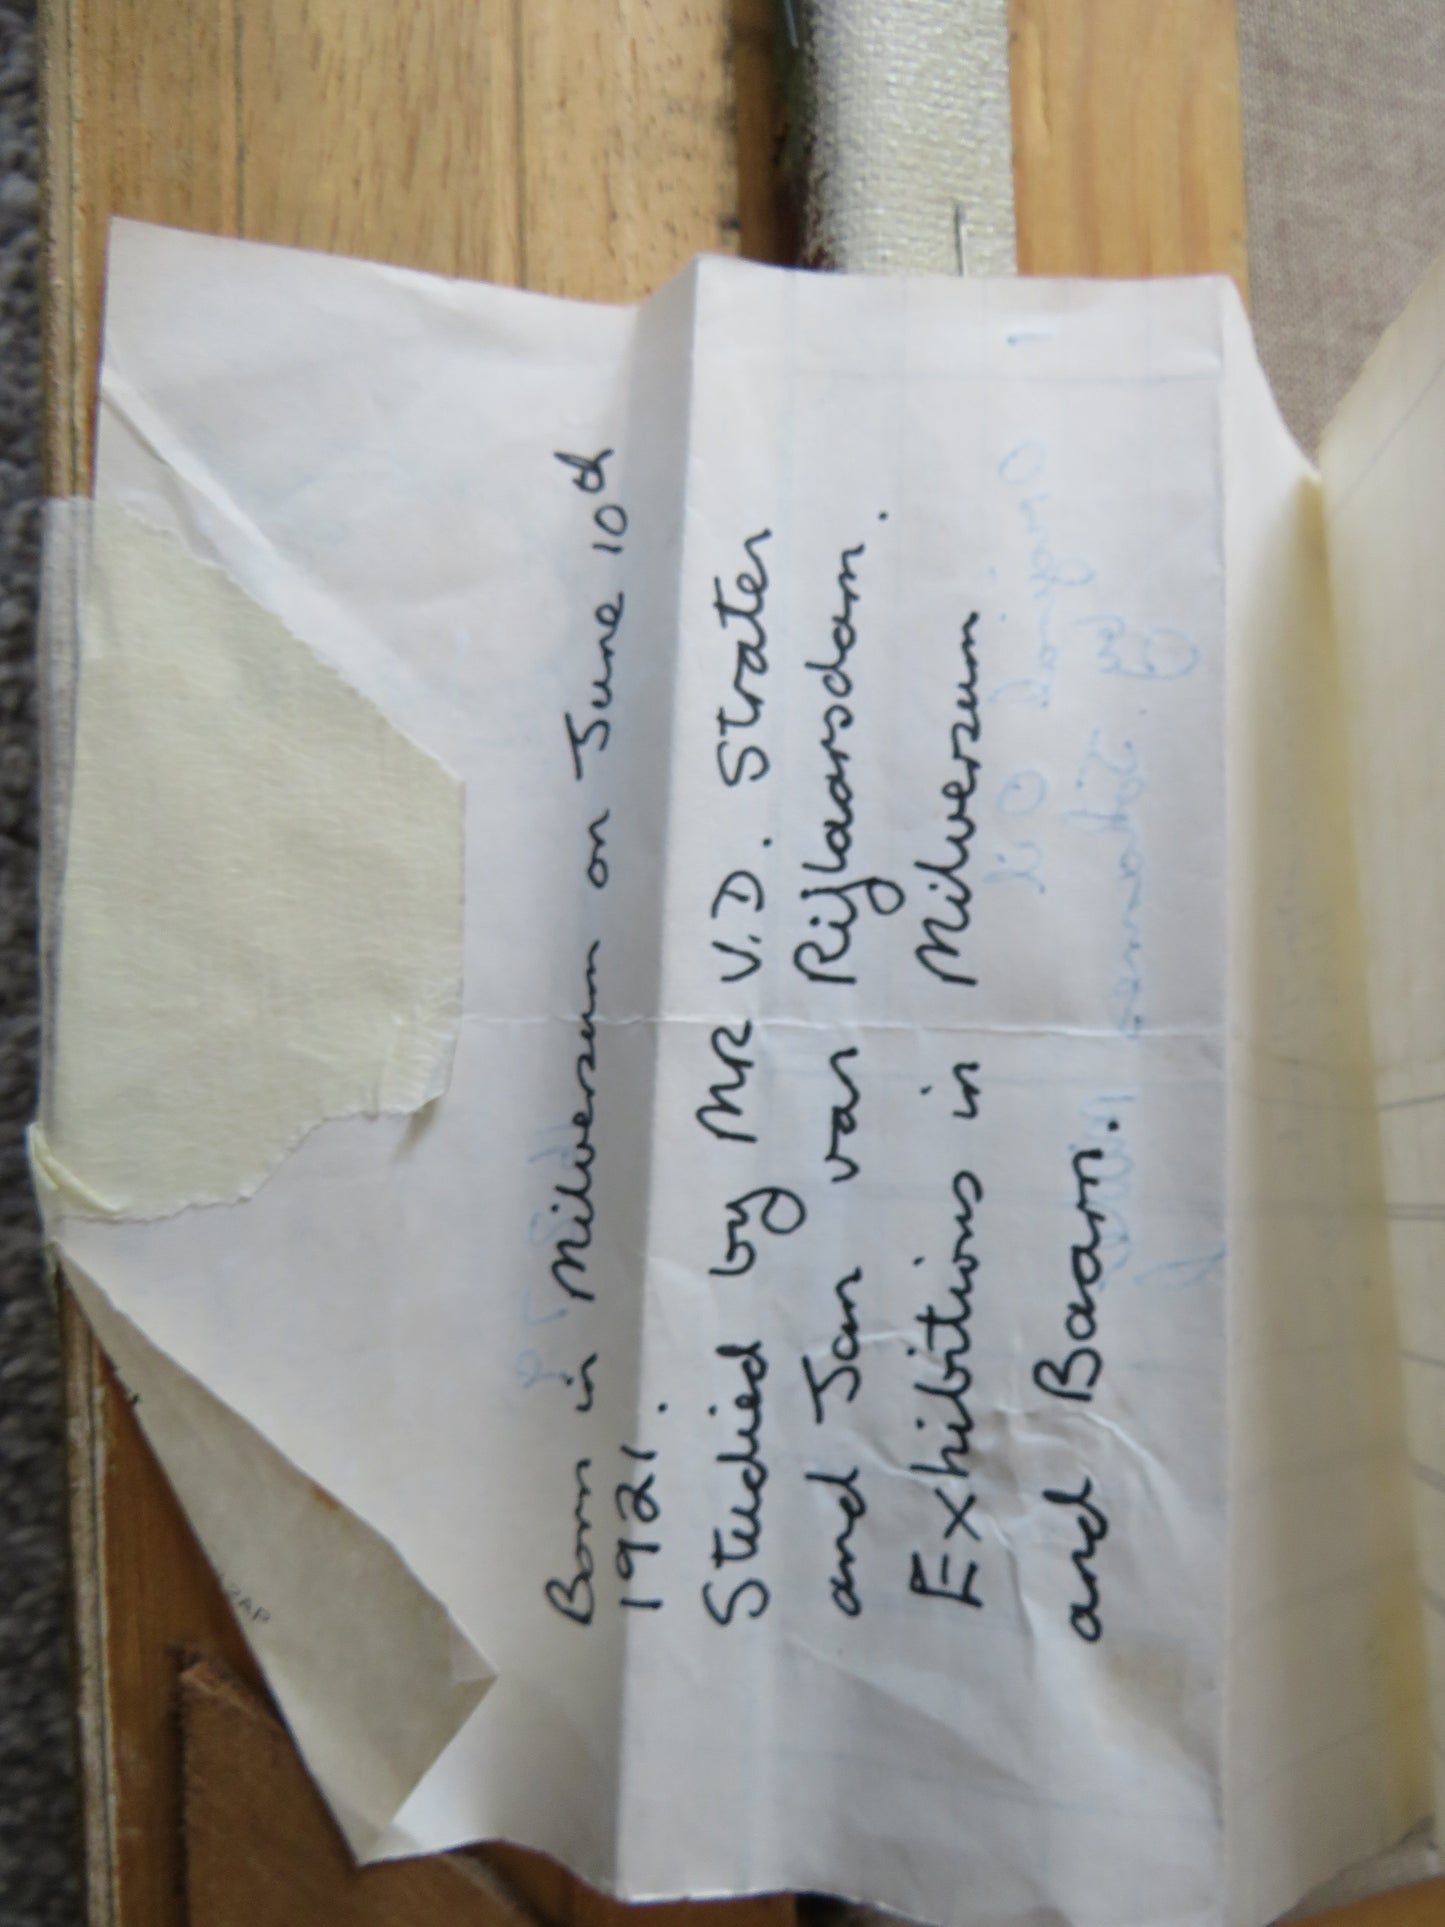 Born in Milversum on June 10th
1921.
Studied by MR V.D. Strater
and Jan van Rijlaarsdam.
Exhibitions in Milversum
and Baarn.